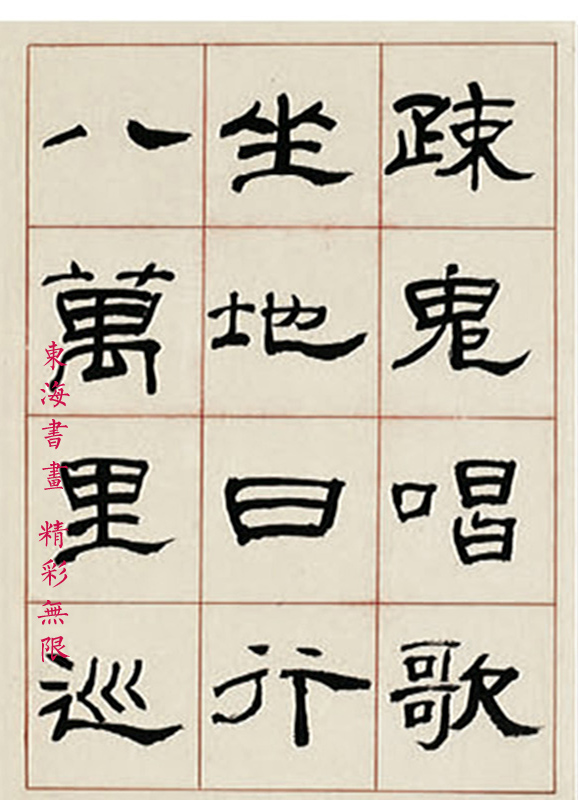 疎鬼唱歌
坐地日行
八萬里巡
東海書畫 精彩無限